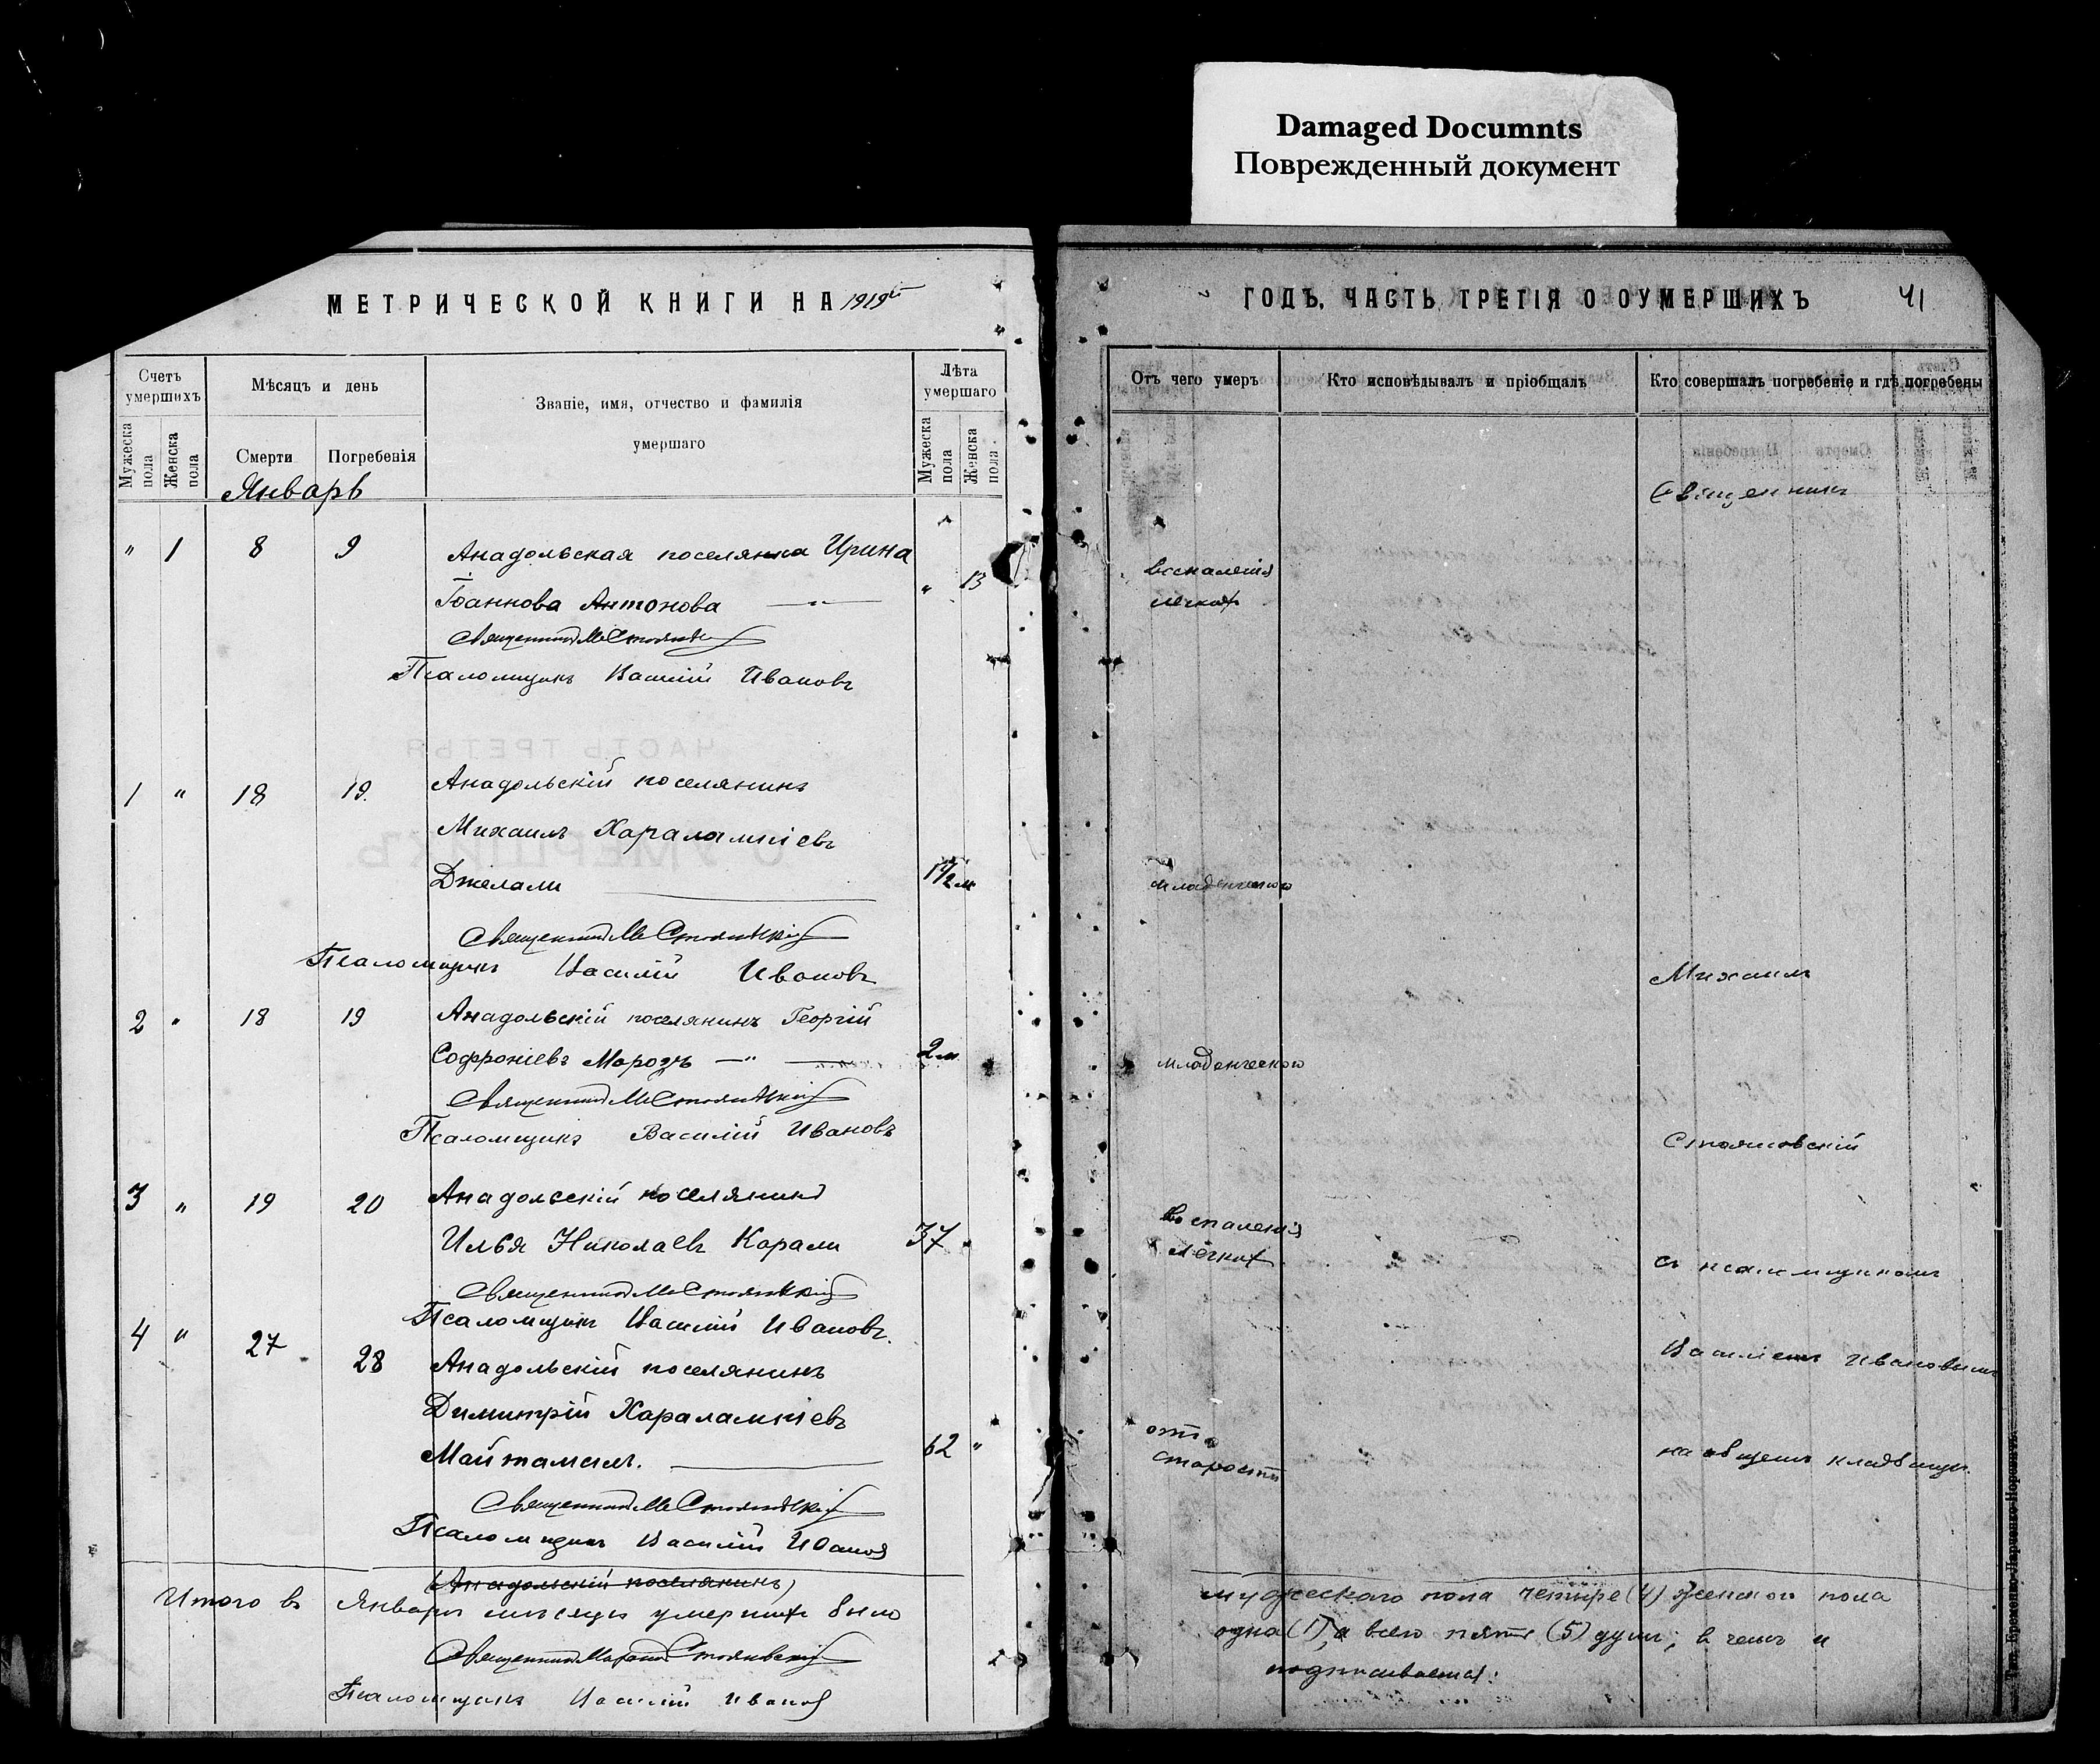 Damaged Documnts
Поврежденный документ
МЕТРИЧЕСКОЙ КНИГИ НА 1919й
Счетъ умершихъ
Мужеска пола
Женска пола
Мѣсяцъ и день
Смерти
Погребенія
Званіе, имя, отчество и фамилія
умершаго
Лѣта умершаго
Мужеска пола
Женска пола.
Январь
" 1 8 9 Анадольская поселянка Ирина
Іоаннова Антонова — " — " 13
Священникъ М Стояновскій
Псаломщикъ Василій Ивановъ
1 " 18 19. Анадольскій поселянинъ
Михаилъ Харалампіевъ
Джелали 1½ м
Священникъ М Стояновскій
Псаломщикъ Василій Ивановъ
2 " 18 19 Анадольскій поселянинъ Георгій
Софроніевъ Морозъ — " — 2 м
Священникъ М Стояновскій
Псаломщикъ Василій Ивановъ
3 " 19 20 Анадольскій поселянинъ
Илья Николаевъ Карали 37 "
Священникъ М Стояновскій
Псаломщикъ Василій Ивановъ.
4 " 27 28 Анадольскій поселянинъ
Димитрій Харалампіевъ
62 "
Священникъ М Стояновскій
Псаломщикъ Василій Ивановъ
(Анадольскій поселянинъ)
Итого в Январѣ мѣсяцѣ умершихъ было
Священникъ Стояновскій
Псаломщикъ Василій Ивановъ
ГОДЪ, ЧАСТЬ ТРЕТІЯ О ОУМЕРШИХЪ 41
Отъ чего умеръ
Кто исповѣдывалъ и пріобщалъ
Кто совершалъ погребеніе и гдѣ погребены
Священникъ
воспаленія
легкихъ
младенческого
Михаилъ
младенческого
Стояновскій
воспаленія
легкихъ
съ псаломщикомъ
Василіемъ Ивановымъ
отъ
старости
на общемъ кладбищѣ.
мужеского пола четыре (4) женского пола
одна (1), а всего пять (5) душъ, в чемъ и
подписываемся: